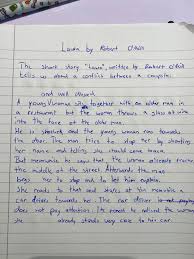 Lawn by Robert
The short story "Lawn", written by Robert
tells us about a conflict between a couple
and
A young woman sits together with an older man in
a restaurant but the woman throws a glass of wine
into the face of the older man.
He is shocked, and the young woman runs towards
the door. The man tries to stop her by shouting
her name and telling she should come back.
But meanwhile he says that, the woman already
the middle of the street. Afterwards the man
begs her to stop and to let him explain.
She reacts to that and stares at him meanwhile a
car drives towards her. The car driver is
does not pay attention
already stands very close to his car.